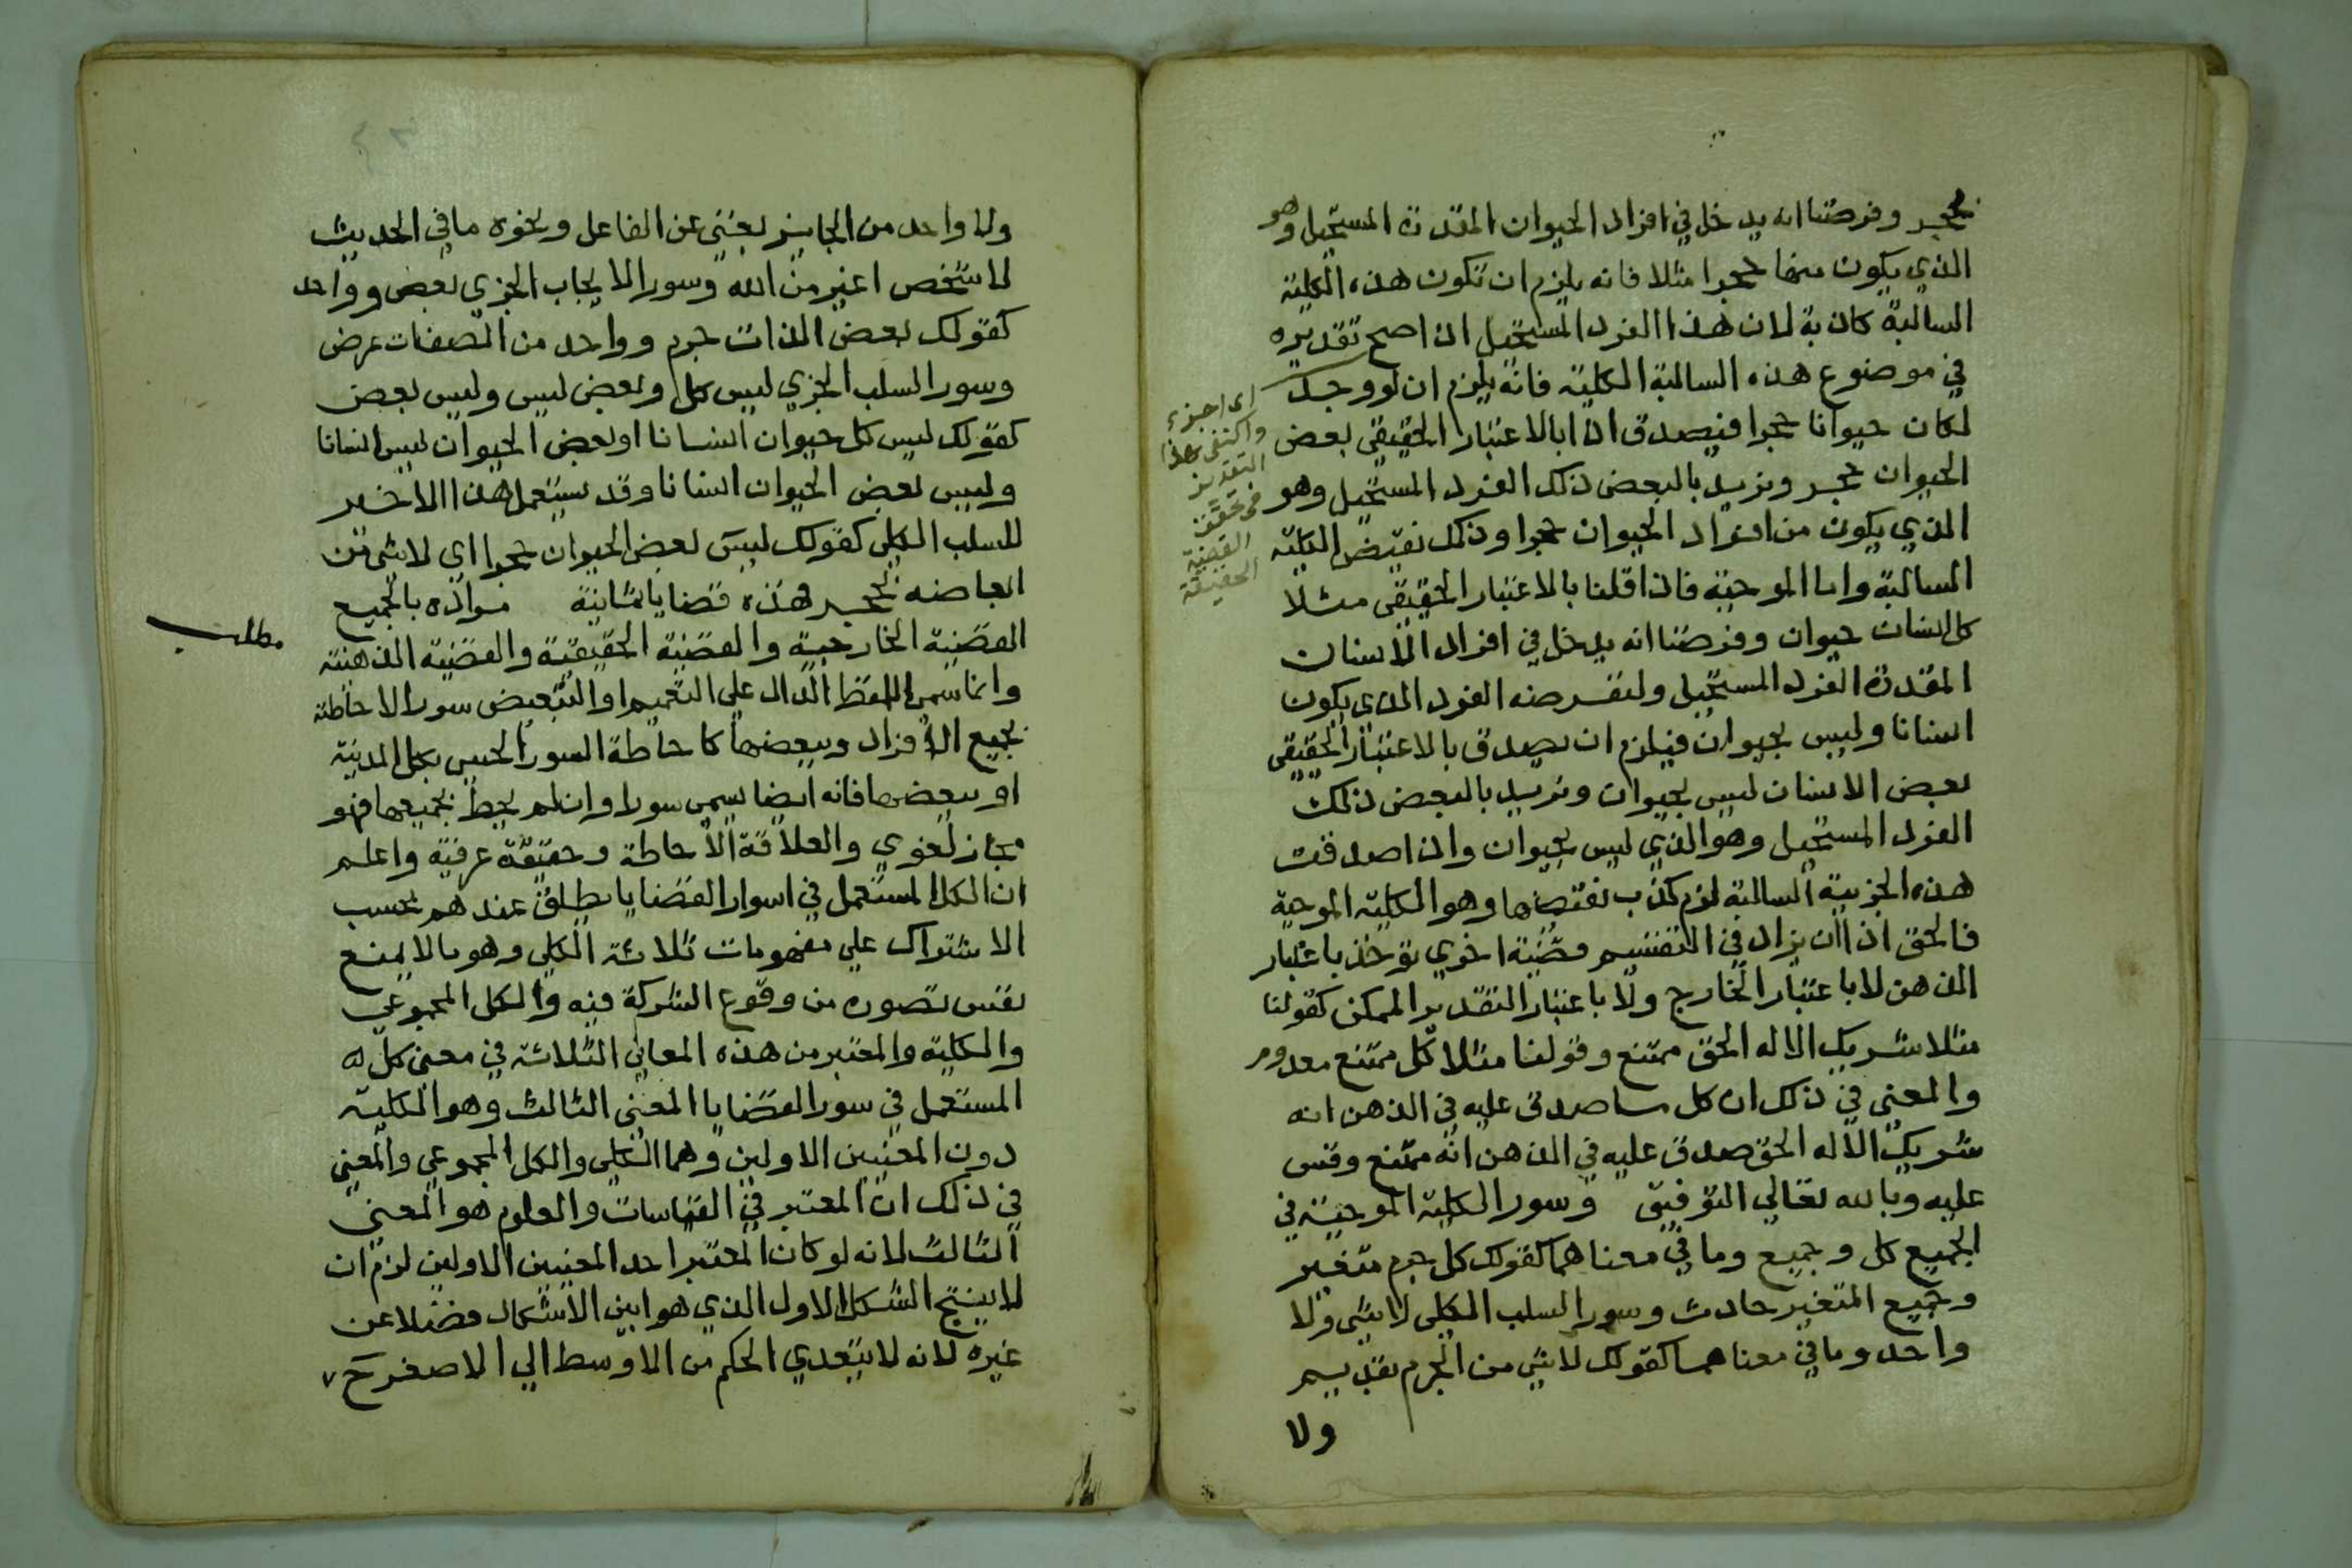 بحجر وفرضنا انه يدخل في افراد الحيوان المقدرة المستحيل وهو
الذي يكون منها حجرا مثلا فانه يلزم ان تكون هذه الكلية
السالبة كاذبة لان هذا الفرد المستحيل اذا صح تقديره
في موضوع هذه السالبة الكلية فانه يلزم ان لو وجد
لكان حيوانا حجرا فيصدق اذا بالاعتبار الحقيقي بعض
الحيوان حجر ونريد بالبعض ذلك الفرد المستحيل وهو
الذي يكون من افراد الحيوان حجرا وذلك نقيض الكلية
السالبة واما الموجبة فاذا قلنا بالاعتبار الحقيقي مثلا
كل انسان حيوان وفرضنا انه يدخل في افراد الانسان
المقدرة الفرد المستحيل ولنفرضه الفرد الذي يكون
انسانا وليس بحيوان فيلزم ان يصدق بالاعتبار الحقيقي
بعض الانسان ليس بحيوان ونريد بالبعض ذلك
الفرد المستحيل وهو الذي ليس بحيوان واذا صدقت
هذه الجزيية السالبة لزم كذب نقيضها وهو الكلية الموجبة
فالحق اذا ان يزاد في التقسيم قضية اخري توخذ باعتبار
الذهن لا باعتبار الخارج ولا باعتبار التقدير الممكن كقولنا
مثلا شريك الاله الحق ممتنع وقولنا مثلا كل ممتنع معدوم
والمعني في ذلك ان كل ما صدق عليه في الذهن انه
شريك الاله الحق صدق عليه في الذهن انه ممتنع وقس
عليه وبالله تعالي التوفيق وسور الكلية الموجبة في
الجميع كل وجميع وما في معناهما كقولك كل جرم متغير
وجميع المتغير حادث وسور السلب الكلي لا شي ولا
واحد وما في معناهما كقولك لا شي من الجرم بقديم
ولا
اي اجزء
واكتفى بهذا
التقدير
في تحقق
القضية
الحقيقة
ولا واحد من الجايز بغني عن الفاعل ونحوه ما في الحديث
لا شخص اغير من الله وسور الايجاب الجزي بعض وواحد
كقولك بعض الذات جرم وواحد من الصفات عرض
وسور السلب الجزي ليس كل وبعض ليس وليس بعض
كقولك ليس كل حيوان انسانا او بعض الحيوان ليس انسانا
وليس بعض الحيوان انسانا وقد يستعمل هذا الاخير
للسلب الكلي كقولك ليس بعض الحيوان حجرا اي لا شي من
ابعاضه بحجر فهذه قضايا ثمانية مراده بالجميع
القضية الخارجية والقضية الحقيقية والقضية الذهنية
وانما سمي اللفظ الدال علي التعميم او التبعيض سورا لاحاطته
بجميع الافراد وببعضها كاحاطة السور الحسي بكل المدينة
او ببعضها فانه ايضا يسمي سورا وان لم يحط بجميعها فهو
مجاز لغوي والعلاقة الاحاطة وحقيقة عرفية واعلم
ان الكل المستعمل في اسوار القضايا يطلق عندهم بحسب
الاشتراك علي مفهومات ثلاثة الكلي وهو ما لا يمنع
نفس تصوره من وقوع الشركة فيه والكل المجموعي
والكلية والمعتبر من هذه المعاني الثلاثة في معني كل
المستعمل في سور القضايا المعني الثالث وهو الكلية
دون المعنيين الاولين وهما الكلي والكل المجموعي والمعني
في ذلك ان المعتبر في القياسات والعلوم هو المعني
الثالث لانه لو كان المعتبر احد المعنيين الاولين لزم ان
لا ينتج الشكل الاول الذي هو ابين الاشكال فضلا عن
غيره لانه لا يتعدي الحكم من الاوسط الي الاصغر ح
مطلب